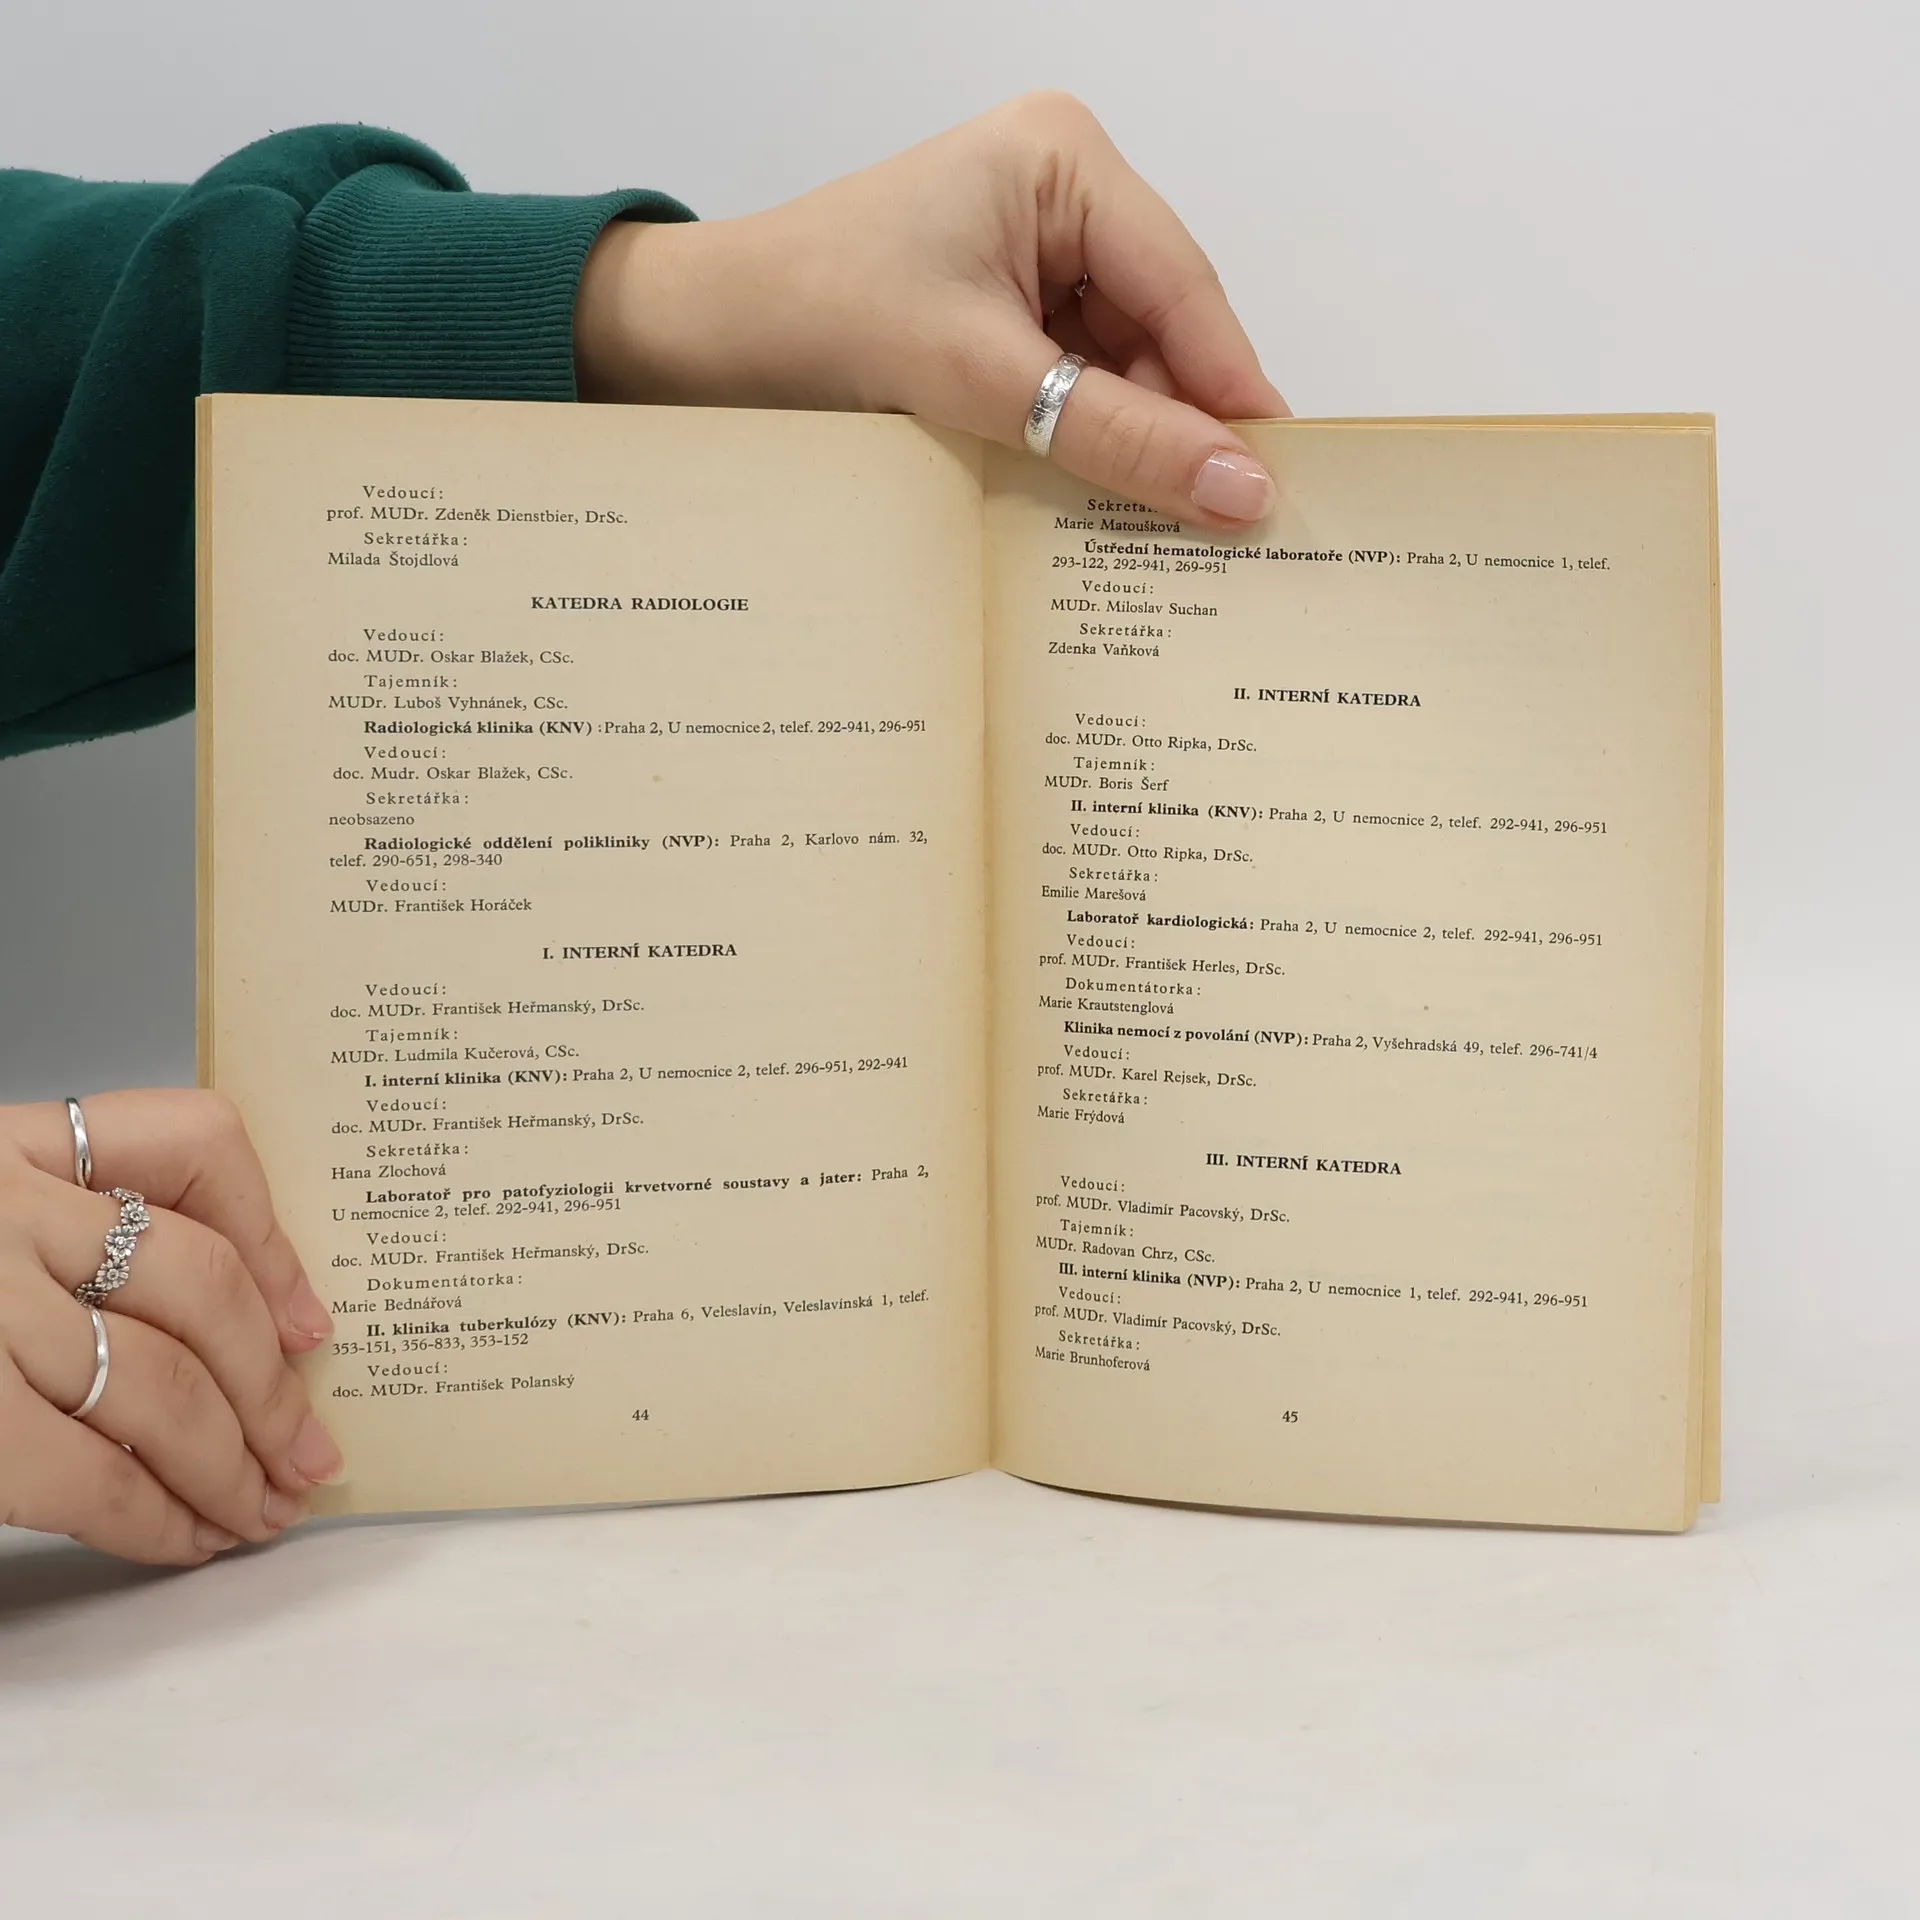 Vedoucí:
prof. MUDr. Zdeněk Dienstbier, DrSc.
Sekretářka:
Milada Štojdlová
KATEDRA RADIOLOGIE
Vedoucí:
doc. MUDr. Oskar Blažek, CSc.
Tajemník:
MUDr. Luboš Vyhnánek, CSc.
Radiologická klinika (KNV) : Praha 2, U nemocnice 2, telef. 292-941, 296-951
Vedoucí:
doc. Mudr. Oskar Blažek, CSc.
Sekretářka:
neobsazeno
Radiologické oddělení polikliniky (NVP): Praha 2, Karlovo nám. 32,
telef. 290-651, 298-340
Vedoucí:
MUDr. František Horáček
I. INTERNÍ KATEDRA
Vedoucí:
doc. MUDr. František Heřmanský, DrSc.
Tajemník:
MUDr. Ludmila Kučerová, CSc.
I. interní klinika (KNV): Praha 2, U nemocnice 2, telef. 296-951, 292-941
Vedoucí:
doc. MUDr. František Heřmanský, DrSc.
Sekretářka:
Hana Zlochová
Laboratoř pro patofyziologii krvetvorné soustavy a jater: Praha 2,
U nemocnice 2, telef. 292-941, 296-951
Vedoucí:
doc. MUDr. František Heřmanský, DrSc.
Dokumentátorka:
Marie Bednářová
II. klinika tuberkulózy (KNV): Praha 6, Veleslavín, Veleslavínská 1, telef.
353-151, 356-833, 353-152
Vedoucí:
doc. MUDr. František Polanský
44
Marie Matoušková
Ústřední hematologické laboratoře (NVP): Praha 2, U nemocnice 1, telef.
293-122, 292-941, 269-951
Vedoucí:
MUDr. Miloslav Suchan
Sekretářka:
Zdenka Vaňková
II. INTERNÍ KATEDRA
Vedoucí:
doc. MUDr. Otto Ripka, DrSc.
Tajemník:
MUDr. Boris Šerf
II. interní klinika (KNV): Praha 2, U nemocnice 2, telef. 292-941, 296-951
Vedoucí:
doc. MUDr. Otto Ripka, DrSc.
Sekretářka:
Emilie Marešová
Laboratoř kardiologická: Praha 2, U nemocnice 2, telef. 292-941, 296-951
Vedoucí:
prof. MUDr. František Herles, DrSc.
Dokumentátorka:
Marie Krautstenglová
Klinika nemocí z povolání (NVP): Praha 2, Vyšehradská 49, telef. 296-741/4
Vedoucí:
prof. MUDr. Karel Rejsek, DrSc.
Sekretářka:
Marie Frýdová
III. INTERNÍ KATEDRA
Vedoucí:
prof. MUDr. Vladimír Pacovský, DrSc.
Tajemník:
MUDr. Radovan Chrz, CSc.
III. interní klinika (NVP): Praha 2, U nemocnice 1, telef. 292-941, 296-951
Vedoucí:
prof. MUDr. Vladimír Pacovský, DrSc.
Sekretářka:
Marie Brunhoferová
45